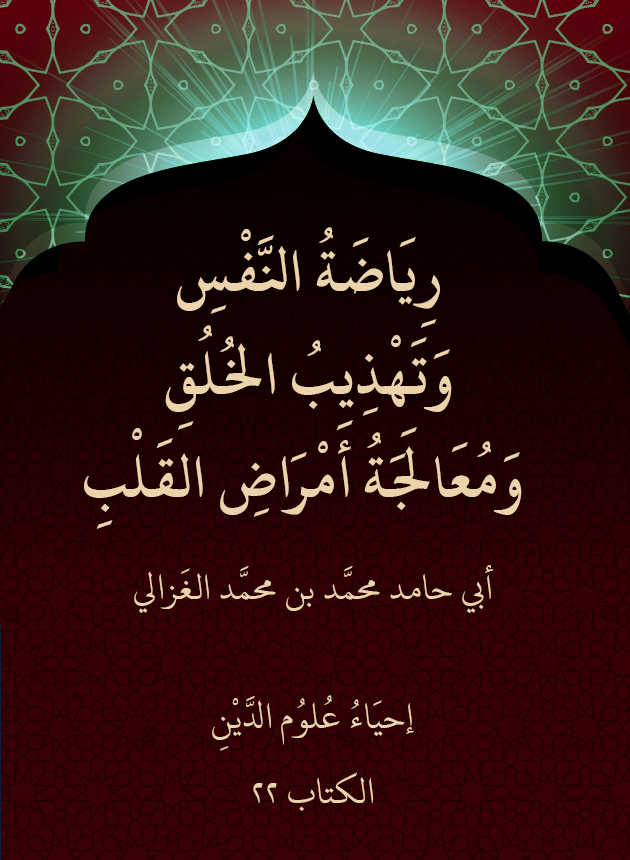 رِيَاضَةُ النَّفْسِ
وَتَهْذِيبُ الخُلُقِ
وَمُعَالَجَةُ أَمْرَاضِ القَلْبِ
أبي حامد محمَّد بن محمَّد الغَزالي
إحيَاءُ عُلوُم الدَّيْنِ
الكتاب ٢٢